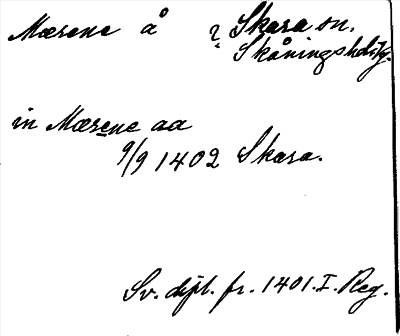 Mærene å ? Skara sn.
Skåningshd.
in Mærene aa
9/9 1402 Skara.
Sv. dipl. fr. 1401. I. Reg.